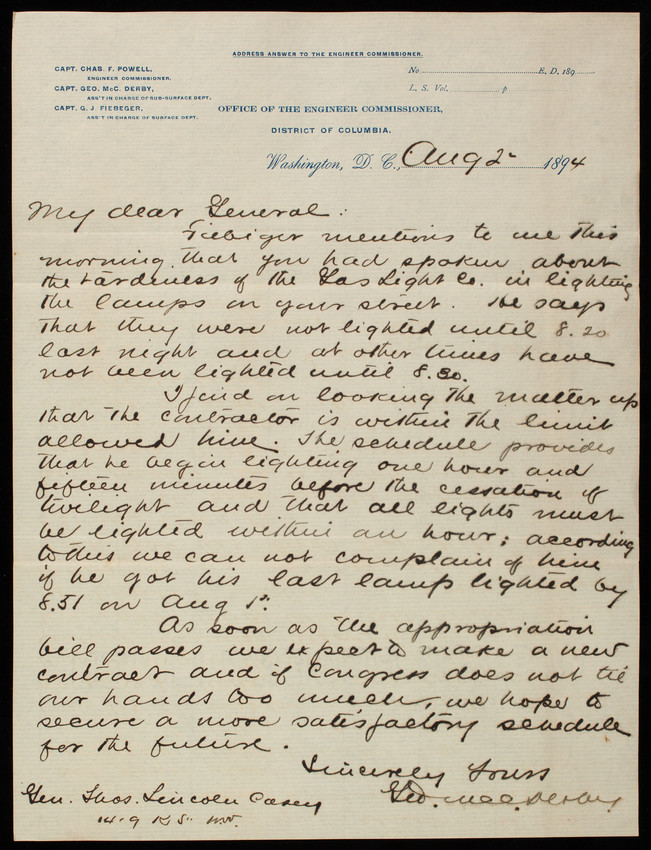 ADDRESS ANSWER TO THE ENGINEER COMMISSIONER.
CAPT. CHAS. F. POWELL,
ENGINEER COMMISSIONER.
CAPT. GEO. McC. DERBY,
ASS'T IN CHARGE OF SUB-SURFACE DEPT.
CAPT. G. J. FIEBEGER,
ASS'T IN CHARGE OF SURFACE DEPT.
No. E. D. 189
L. S. Vol. p
OFFICE OF THE ENGINEER COMMISSIONER,
DISTRICT OF COLUMBIA.
Washington, D. C., Aug 2 1894
My dear General:
Fiebiger mentions to me this
morning that you had spoken about
the tardiness of the Gas Light Co. in lighting
the lamps on your street. He says
that they were not lighted until 8.20
last night and at other times have
not been lighted until 8.30.
I find on looking the matter up
that the contractor is within the limit
allowed him. The schedule provides
that he begin lighting one hour and
fifteen minutes before the cessation of
twilight and that all lights must
be lighted within an hour; according
to this we can not complain of him
if he got his last lamp lighted by
8.51 on Aug 1st.
As soon as the appropriation
bill passes we expect to make a new
contract and if Congress does not tie
our hands too much, we hope to
secure a more satisfactory schedule
for the future.
Sincerely Yours
Geo. McC. Derby
Gen. Thos. Lincoln Casey
1419 K St. N.W.